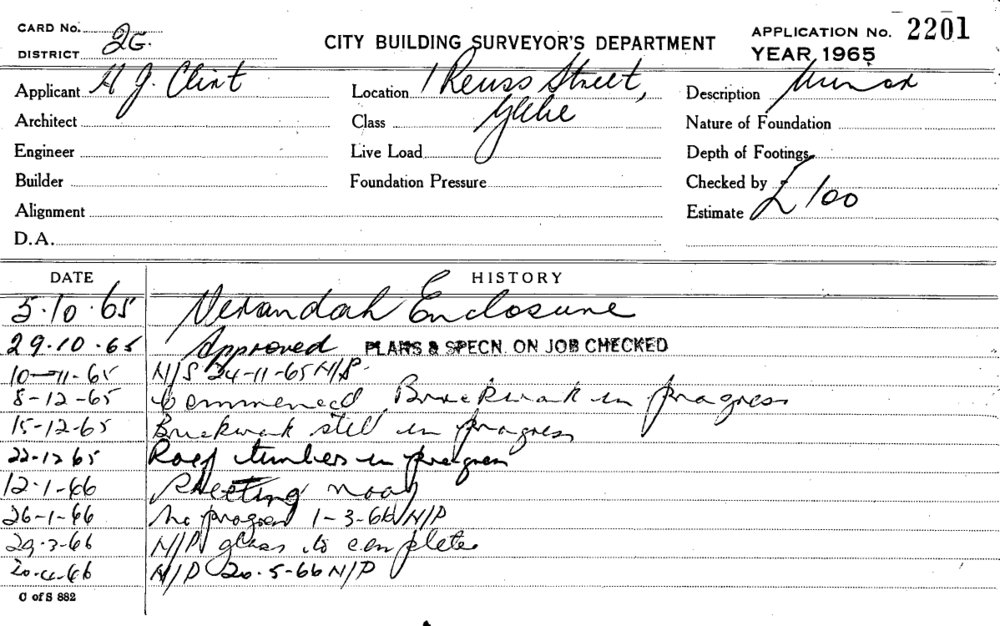 CARD No. 2G.
DISTRICT
CITY BUILDING SURVEYOR'S DEPARTMENT
APPLICATION No. 2201
YEAR, 1965
Applicant H J. Clint
Location 1 Reuss Street,
Glebe
Description Minor
Architect
Class
Nature of Foundation
Engineer
Live Load
Depth of Footings
Builder
Foundation Pressure
Checked by
Alignment
Estimate £100
D.A.
DATE HISTORY
5.10.65 Verandah Enclosure
29.10.65 Approved PLANS & SPECN. ON JOB CHECKED
10-11-65 N/S 24-11-65 N/P.
8-12-65 Commenced Brickwork in progress
15-12-65 Brickwork still in progress
22-12 65 Roof timbers in progress
12-1-66 Sheeting
26-1-66 No progress 1-3-66 N/P
29-3-66 N/P glass to complete
20-4-66 N/P 20-5-66 N/P
C of S 882